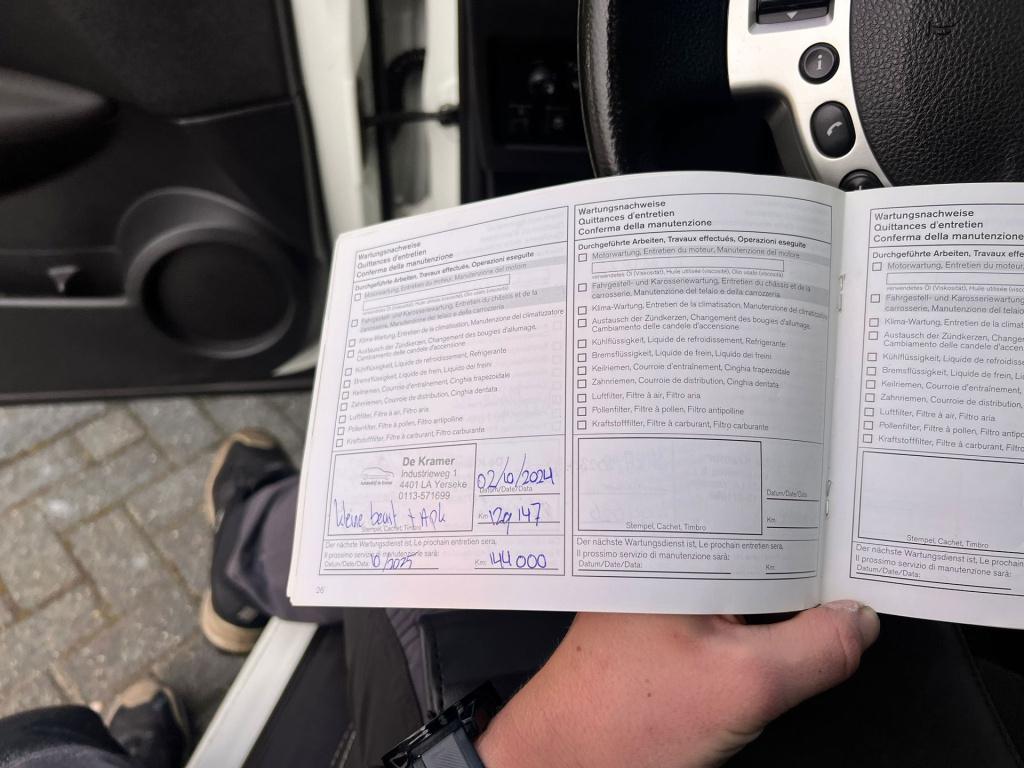 Wartungsnachweise
Quittances d'entretien
Conferma della manutenzione
Durchgeführte Arbeiten, Travaux effectués, Operazioni eseguite
Motorwartung, Entretien du moteur, Manutenzione del motore
verwendetes Öl (Viskosität), Huile utilisée (viscosité), Olio usato (viscosità)
Fahrgestell- und Karosseriewartung, Entretien du châssis et de la
carrosserie, Manutenzione del telaio e della carrozzeria
Klima-Wartung, Entretien de la climatisation, Manutenzione del climatizzatore
Austausch der Zündkerzen, Changement des bougies d'allumage,
Cambiamento delle candele d'accensione
Kühlflüssigkeit, Liquide de refroidissement, Refrigerante
Bremsflüssigkeit, Liquide de frein, Liquido dei freini
Keilriemen, Courroie d'entraînement, Cinghia trapezoidale
Zahnriemen, Courroie de distribution, Cinghia dentata
Luftfilter, Filtre à air, Filtro aria
Pollenfilter, Filtre à pollen, Filtro antipolline
Kraftstofffilter, Filtre à carburant, Filtro carburante
De Kramer
Industrieweg 1
4401 LA Yerseke
0113-571699
02/10/2024
Datum/Date/Data
kleine beurt + Apk
Km: 129 147
Stempel, Cachet, Timbro
Der nächste Wartungsdienst ist, Le prochain entretien sera,
Il prossimo servizio di manutenzione sarà:
Datum/Date/Data: 10/2025 Km: 144 000
26
Wartungsnachweise
Quittances d'entretien
Conferma della manutenzione
Durchgeführte Arbeiten, Travaux effectués, Operazioni eseguite
Motorwartung, Entretien du moteur, Manutenzione del motore
verwendetes Öl (Viskosität), Huile utilisée (viscosité), Olio usato (viscosità)
Fahrgestell- und Karosseriewartung, Entretien du châssis et de la
carrosserie, Manutenzione del telaio e della carrozzeria
Klima-Wartung, Entretien de la climatisation, Manutenzione del climatizzatore
Austausch der Zündkerzen, Changement des bougies d'allumage,
Cambiamento delle candele d'accensione
Kühlflüssigkeit, Liquide de refroidissement, Refrigerante
Bremsflüssigkeit, Liquide de frein, Liquido dei freini
Keilriemen, Courroie d'entraînement, Cinghia trapezoidale
Zahnriemen, Courroie de distribution, Cinghia dentata
Luftfilter, Filtre à air, Filtro aria
Pollenfilter, Filtre à pollen, Filtro antipolline
Kraftstofffilter, Filtre à carburant, Filtro carburante
Datum/Date/Data
Km:
Stempel, Cachet, Timbro
Der nächste Wartungsdienst ist, Le prochain entretien sera,
Il prossimo servizio di manutenzione sarà:
Datum/Date/Data: Km:
Wartungsnachweise
Quittances d'entretien
Conferma della manutenzione
Durchgeführte Arbeiten, Travaux
Motorwartung, Entretien du moteur,
verwendetes Öl (Viskosität), Huile utilisée
Fahrgestell- und Karosseriewartung
carrosserie, Manutenzione del telaio
Klima-Wartung, Entretien de la
Austausch der Zündkerzen,
Cambiamento delle candele
Kühlflüssigkeit, Liquide de
Bremsflüssigkeit, Liquide de frein,
Keilriemen, Courroie d'entraînement,
Zahnriemen, Courroie de distribution,
Luftfilter, Filtre à air, Filtro aria
Pollenfilter, Filtre à pollen, Filtro
Kraftstofffilter, Filtre à carburant,
Stempel, Cachet, Timbro
Der nächste Wartungsdienst ist, Le
Il prossimo servizio di manutenzione sarà:
Datum/Date/Data: